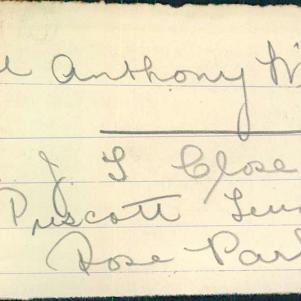 Anthony
J L Close
Prescott
Rose Par